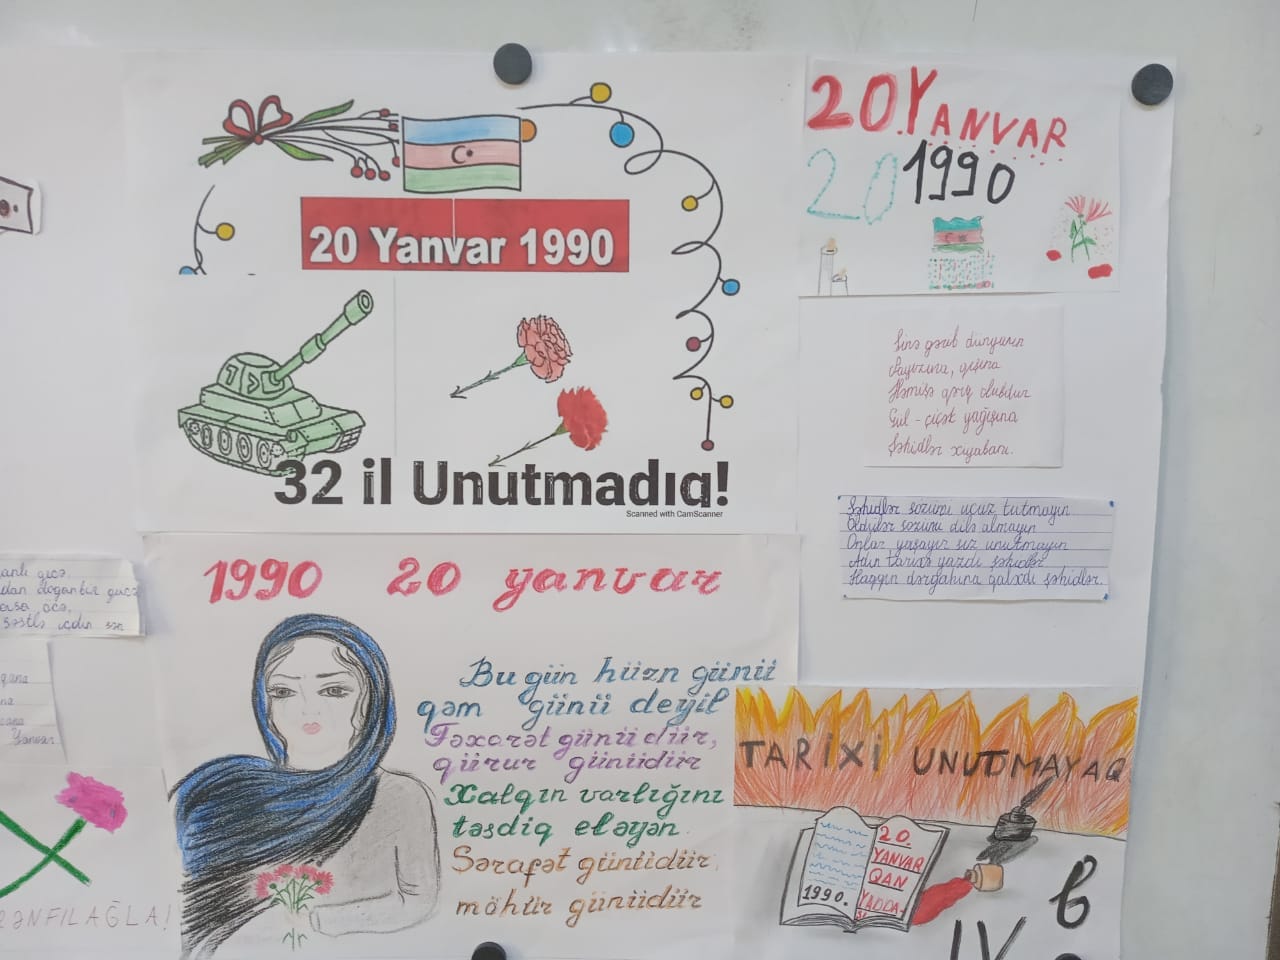 20 Yanvar 1990
32 il Unutmadıq!
Scanned with CamScanner
20 YANVAR
20 1990
Sinə gərib dünyanın
Payızına, qışına
Həmişə qərq olubdur
Gül-çiçək yağışına
Şəhidlər xiyabanı.
Şəhidlər sözünü ucuz tutmayın
Ölənlər sözünü dilə almayın
Onlar yaşayır siz unutmayın
Adın tarixə yazdı şəhidlər
Haqqın dərgahına qalxdı şəhidlər.
anlı gecə
dan doğan bu gecə
öcə,
üçün sən
qana
na
cana
Yanvar
ƏNFİL AĞLA!
1990 20 yanvar
Bu gün hüzn günü
qəm günü deyil
Fəxarət günüdür,
qürur günüdür
Xalqın varlığını
təsdiq eləyən
Şərafət günüdür,
möhür günüdür
TARİXİ UNUTMAYAQ
1990.
20.
YANVAR
QAN
YADDA-
SI
IV